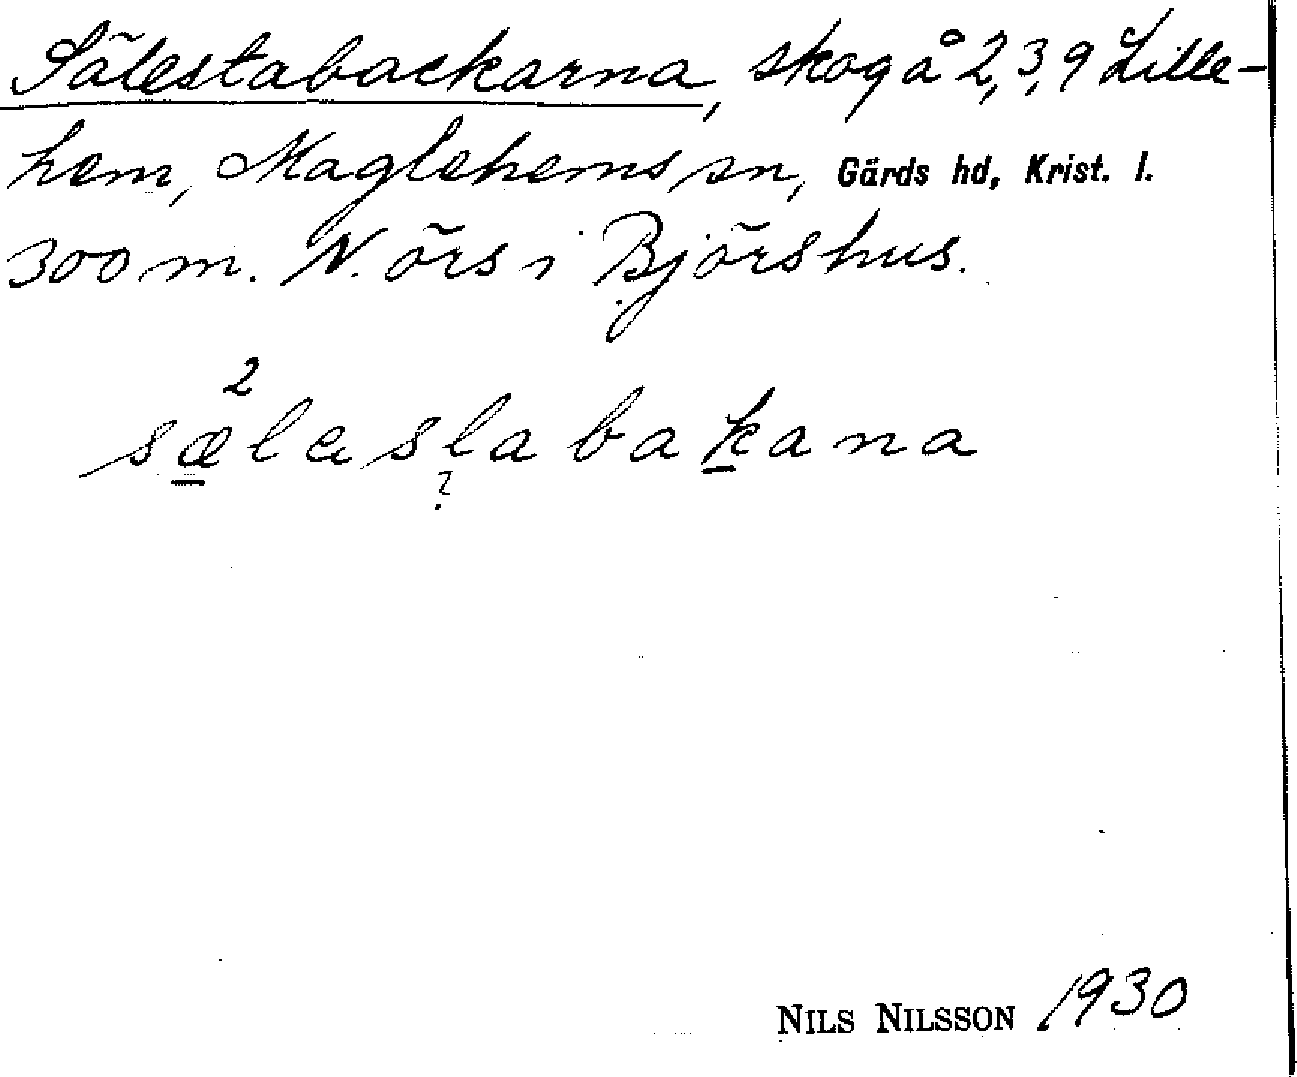 Sälestabackarna, skog å 2,3,9 Lille-
hem, Maglehems sn, Gärds hd, Krist. l.
300 m. N. örs i Björshus.
2
sælaslabakana
?
NILS NILSSON 1930